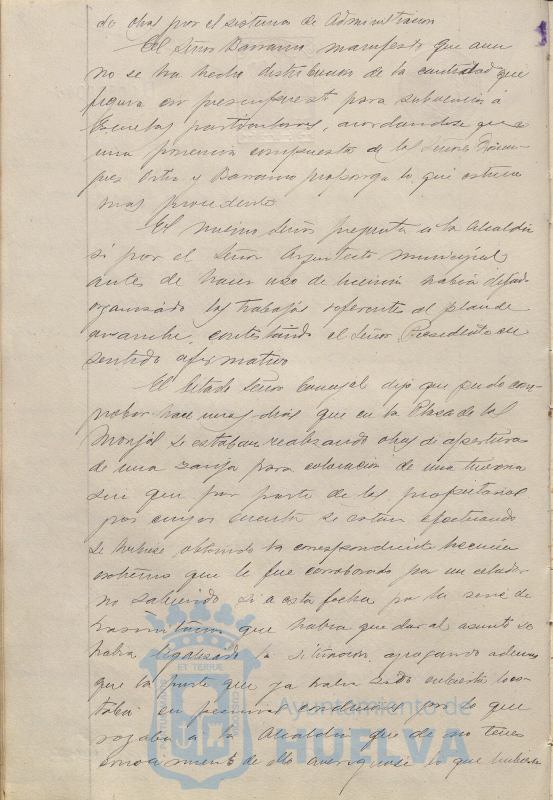 do obras por el sistema de Administracion
El Señor Barranco manifesto que aun
no se ha hecho distribucion de la cantidad que
figura en presupuesto para subvencion á
Escuelas particulares, acordandose que
una ponencia compuesta de los Señores
Ortiz y Barranco proponga lo que estimen
mas procedente.
El mismo Señor pregunta a la Alcaldia
si por el Señor Arquitecto municipal
antes de hacer uso de licencia habia dejado
organizado los trabajos referentes al plan de
ensanche, contestando el Señor Presidente en
sentido afirmativo
El citado Señor Concejal dijo que pudo com-
probar hace unos dias que en la Plaza de las
Monjas se estaban realizando obras de apertura
de una zanja para colocacion de una tuberia
sin que por parte de los propietarios
por cuya cuenta se estan efectuando
se hubiese obtenido la correspondiente licencia
extremo que le fue corroborado por un celador
no sabiendo si a esta fecha por la serie de
tramitacion que habia que dar al asunto se
habia legalizado la situacion, agregando ademas
que la parte que ya habia sido cubierta es-
taba en pesimas condiciones por lo que
rogaba a la Alcaldia que de no tener
conocimiento de ello averiguase lo que hubiera
ET TERRAE
Ayuntamiento de
HUELVA